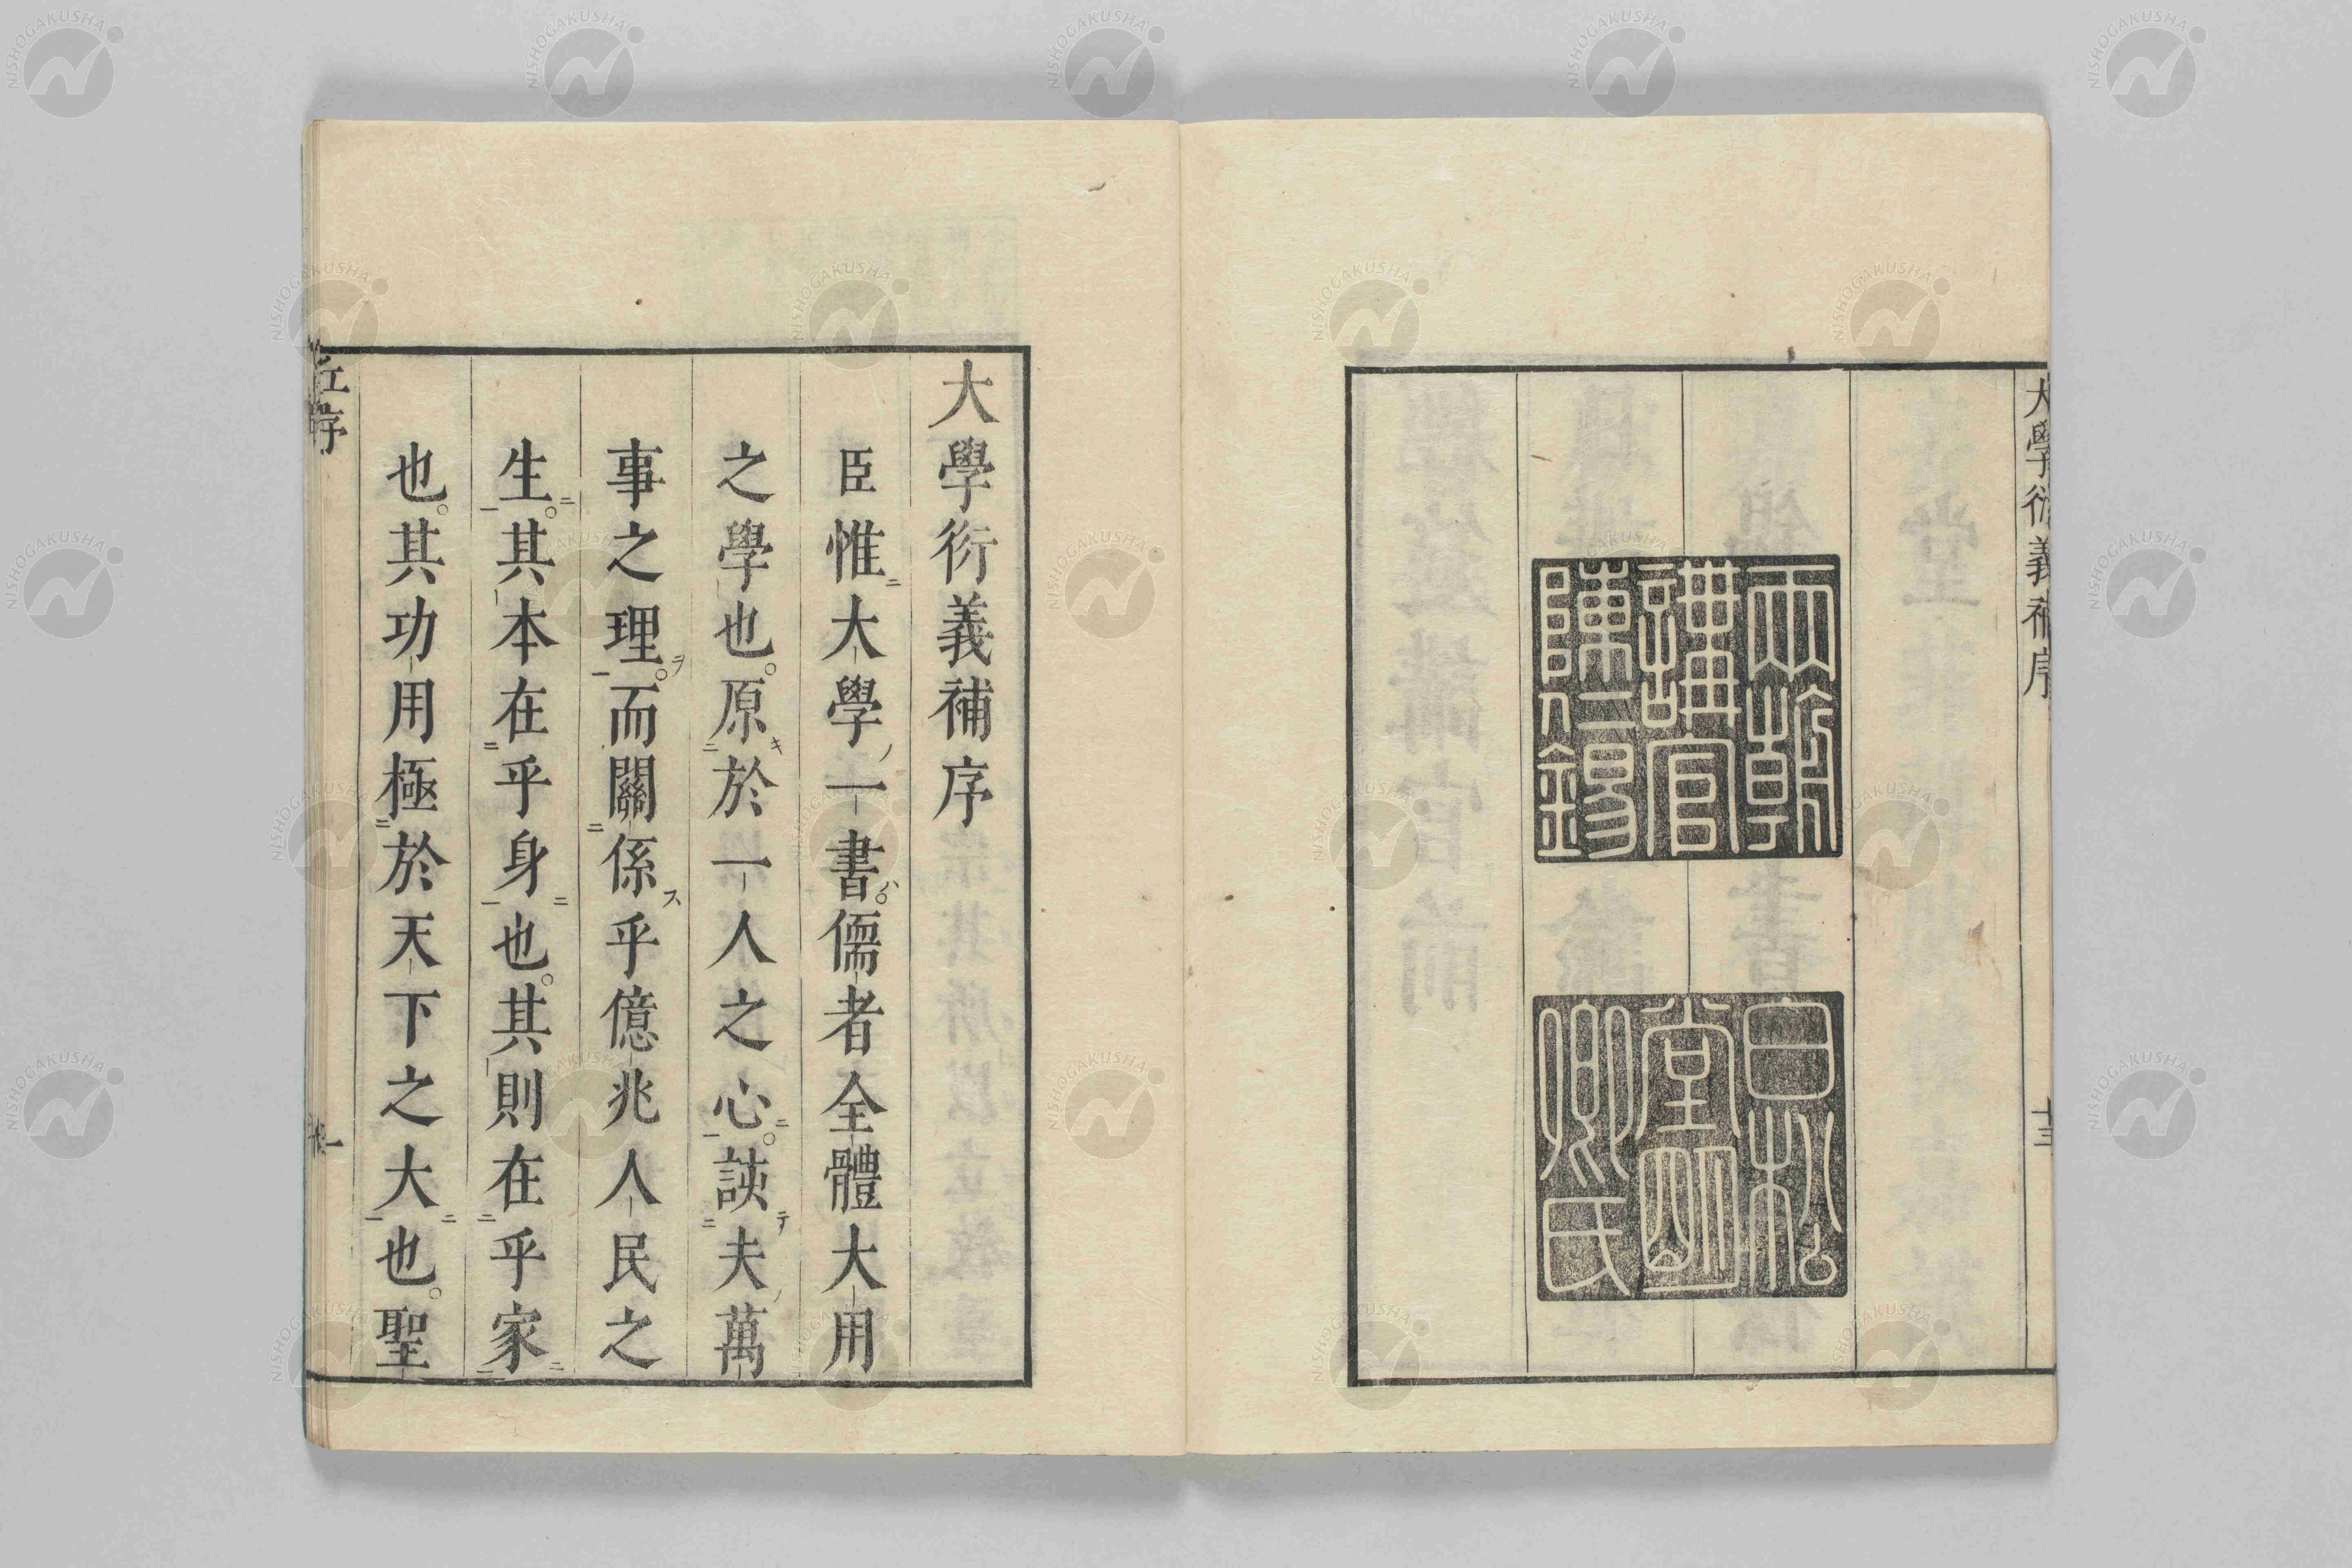 大學衍義補序
十三
兩朝
講官
陳仁錫
白松
堂明
卿氏
大學衍義補序
臣惟大學一書。儒者全體大用
之學也。原於一人之心。該夫萬
事之理。而關係乎億兆人民之
生。其本在乎身也。其則在乎家
也。其功用極於天下之大也。聖
丘序
一